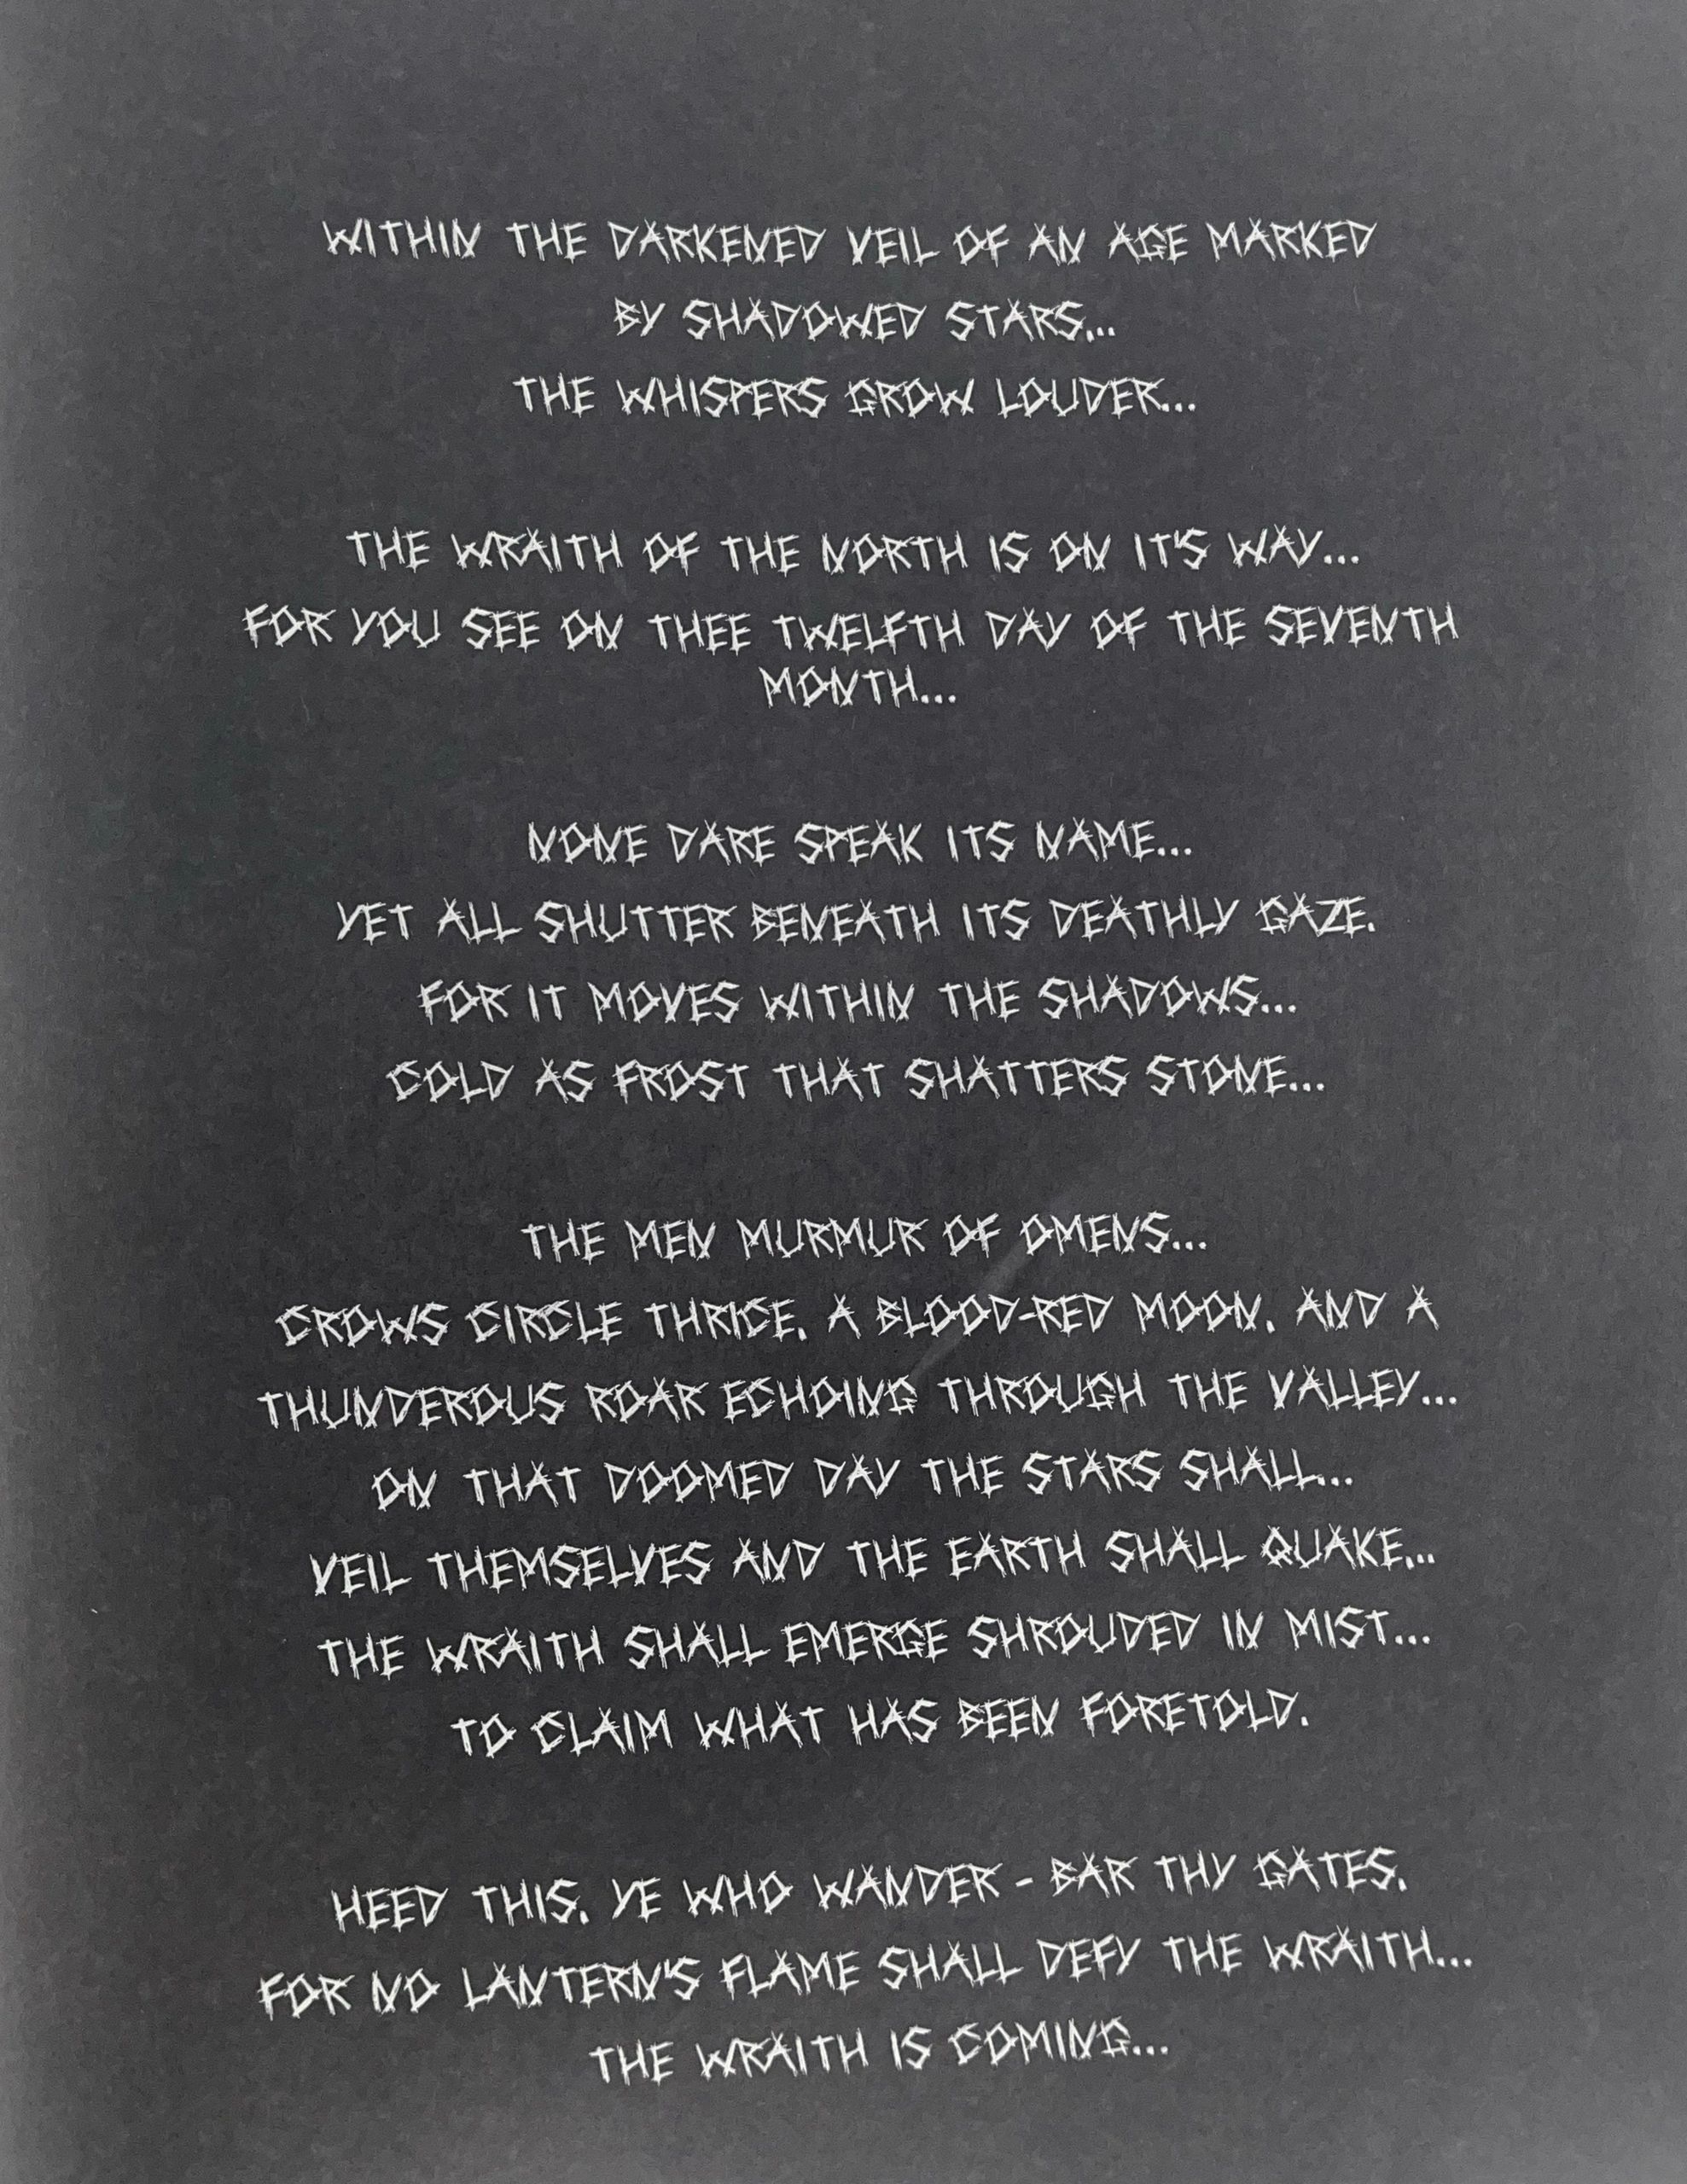 WITHIN THE DARKENED VEIL OF AN AGE MARKED
BY SHADOWED STARS...
THE WHISPERS GROW LOUDER...
THE WRAITH OF THE NORTH IS ON IT'S WAY...
FOR YOU SEE ON THEE TWELFTH DAY OF THE SEVENTH
MONTH...
NONE DARE SPEAK ITS NAME...
YET ALL SHUTTER BENEATH ITS DEATHLY GAZE.
FOR IT MOVES WITHIN THE SHADOWS...
COLD AS FROST THAT SHATTERS STONE...
THE MEN MURMUR OF OMENS...
CROWS CIRCLE THRICE, A BLOOD-RED MOON, AND A
THUNDEROUS ROAR ECHOING THROUGH THE VALLEY...
ON THAT DOOMED DAY THE STARS SHALL...
VEIL THEMSELVES AND THE EARTH SHALL QUAKE...
THE WRAITH SHALL EMERGE SHROUDED IN MIST...
TO CLAIM WHAT HAS BEEN FORETOLD.
HEED THIS, YE WHO WANDER - BAR THY GATES,
FOR NO LANTERN'S FLAME SHALL DEFY THE WRAITH...
THE WRAITH IS COMING...